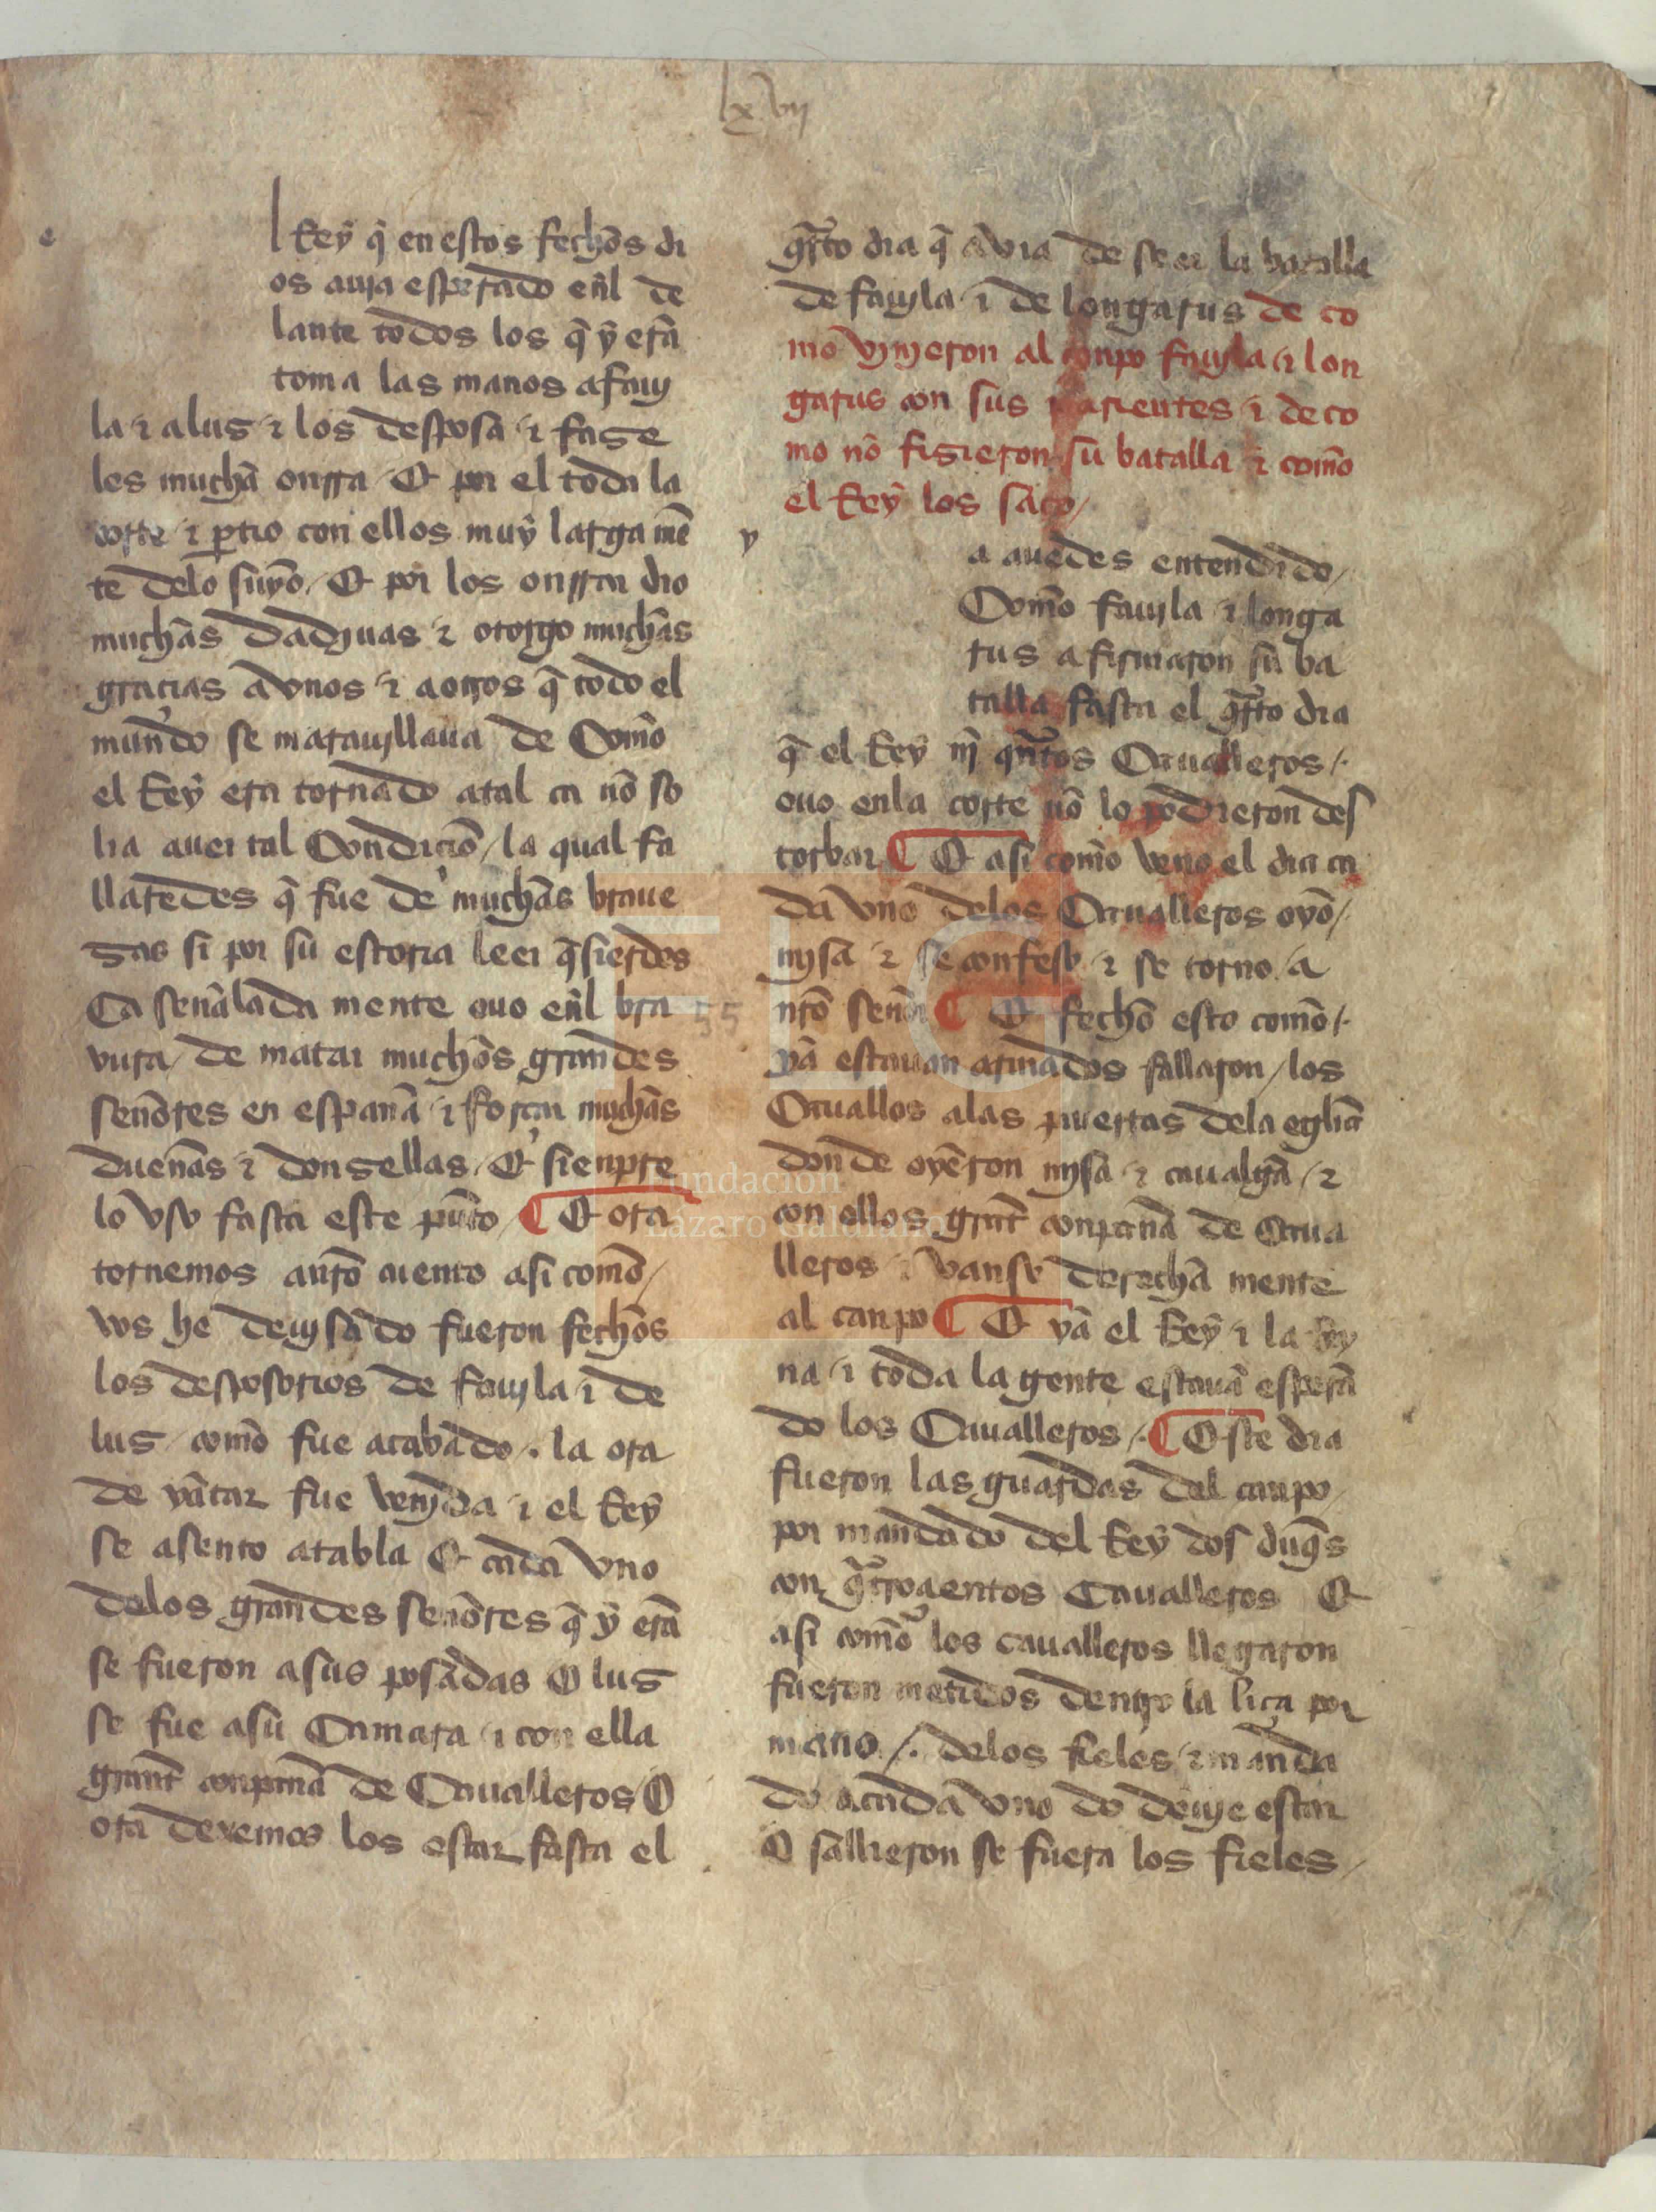 lxvij
e
l Rey q̃ en estos fechõs di
os auja esperado en̄l de
lante todos los q̃ ẏ erã
toma las manos a fauj
la ⁊ a lus ⁊ los desposa ⁊ fase
les muchã onrra Et por el toda la
corte ⁊ ꝑtio con ellos muẏ larga mẽ
te delo suyõ Et por los onrrar dio
muchãs dadjuas ⁊ otorgo muchãs
gracias a vnos ⁊ a otros q̃ todo el
mundo se marauillaua de Comõ
el Reẏ era tornado atal ca nõ so
lia auer tal Condiciõ / la qual fa
llaredes q̃ fue de muchãs braue
sas si por su estoria leer q̃sierdes
Ca señalada mente ouo en̄l bra
vura / de matar muchõs grandes
señores en españa ⁊ forçar muchãs
dueñas ⁊ donsellas / Et sienpre
lo vso fasta este pũto / ¶ Et ora
tornemos a nr̃o cuento asi comõ /
vos he deujsado fueron fechõs
los desposorios de faujla ⁊ de
lus / comõ fue acabado . la ora
de yãtar fue venjda ⁊ el Reẏ
se asento a tabla Et cada vno
delos grandes señores q̃ ẏ erã
se fueron a sus posadas E lus
se fue a su Camara ⁊ con ella
grant conpañã de Caualleros E
ora dexemos los estar fasta el
q̃rto dia q̃ avia de seer la batalla
de faujla ⁊ de longarus de co
mõ vjnjeron al conpo faujla ⁊ lon
garus con sus parientes ⁊ de co
mo nõ fisieron su batalla ⁊ comõ
el Reẏ los saco /
y
a auedes entendido /
Comõ faujla ⁊ longa
rus afirmaron su ba
talla fasta el q̃rto dia
q̃ el Reẏ nj̃ quãtos Caualleros /.
ouo enla corte nõ lo podieron des
torbar ¶ Et asi comõ veno el dia ca
da vno delos Caualleros oyõ /.
mjsa ⁊ se confeso ⁊ se torno a
nr̃o señor ¶ Et fechõ esto comõ /.
yã estauan armados fallaron / los
Cauallos alas puertas dela eglia
donde oyẽron mjsa ⁊ caualgã / ⁊
con ellos grant conpañã de Caua
lleros ⁊ vanse derechã mente
al canpo ¶ Et yã el Reẏ ⁊ la rey
na ⁊ toda la gente estauã esperã
do los Caualleros /. ¶ Este dia
fueron las guardas del canpo /
por mandado del Reẏ dos duq̃s
con q̃trocientos Caualleros Et
asi comõ los caualleros llegaron
fueron metidos dentro la liça por
mano /. delos fieles ⁊ manda
do a cada vno do deuje estar
E sallieron se fuera los fieles /
55
FLG
Fundación
Lázaro Galdiano